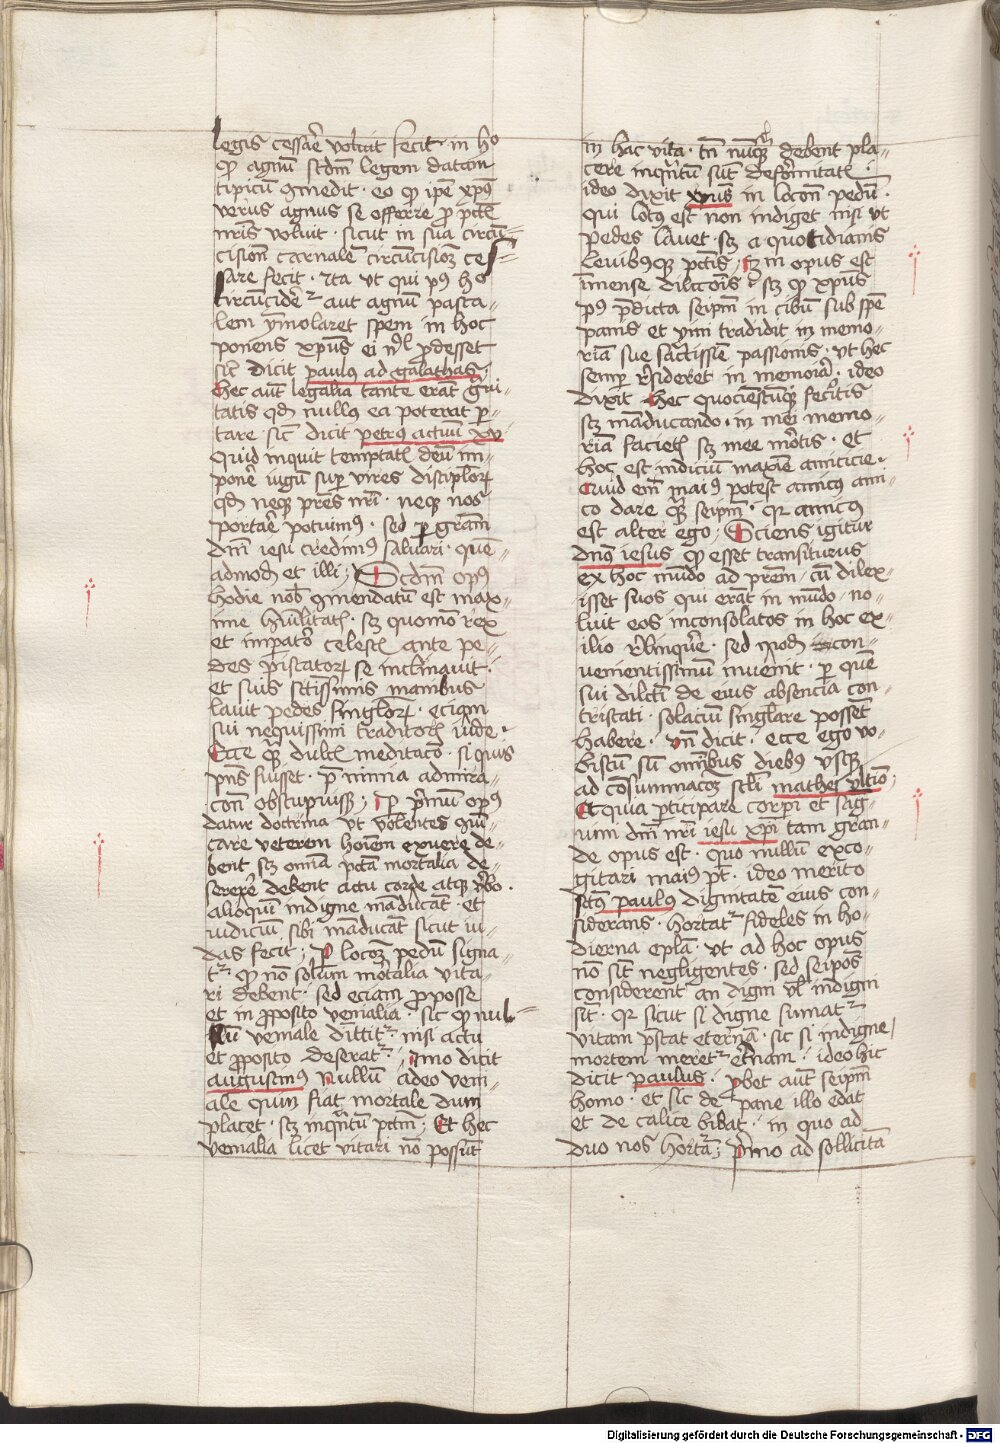 legis cessare voluit fecit in ho
qp agnu scdm legem datam
tipicu gmedit · eo qp ipe xps
verus agnus se offerre p pctis
nris voluit · sicut in sua circu=
cision carnale circucisioz ces=
sare fecit · Ita ut qui ps ho
circucider aut agnu pasca=
lem ymolaret spem in hoc
ponens xpus ei nl pdesset
sic dicit paulus ad galathas
hec aut legalia tante erat gui=
tatis qd nullus ea poterat p=
tare sic dicit petrus actuu xv
Quid inquit temptatis deu im=
pone iugu sup vires disciplor
qd neque pres nri · neque nos
portare potuimus · sed p gram
dni iesu credimus saluari · que=
admod et illi · Scdm opus
hodie nob gmendatu est max=
ime humilitatis · sz quomo rex
et impator celestis ante pe=
des piscator se inclinauit ·
et suis sctissimis manibus
lauit pedes singlor · eciam
sui nequissimi traditoris iude ·
Ecce q dulcis meditaco · si quis
pns fuisset · p nimia admira=
con obstupuiss · p pmu opus
datur doctrina ut volentes gui=
care veterem hoiem exuere de=
bent sz omia pcta mortalia de=
serere debent actu corde atque vbo ·
alioquin indigne maducat · et
iudiciu sibi maducat sicut iu=
das fecit · P locoz pedu signa=
t qp no solum mortalia vita=
ri debent · sed eciam pposse
et in pposito venialia · sic qp nul=
lu veniale dimittit nisi actu
et pposito deserat · Imo dicit
augustinus Nullu adeo veni=
ale quin fiat mortale dum
placet · sz inqntu pctm · Et hec
venialia licet vitari no possut
in hac vita · tn nuq debent pla=
cere inqntum sut deformitatis ·
ideo dixit xpus in locon pedu ·
qui lotus est non indiget nisi ut
pedes lauet · sz a quotidianis
leuibusque pctis · Tz in opus est
imense dilccois · sz qp xpus
ps pdicta seipm in cibu sub spe
panis et vini tradidit in memo=
ria sue sactissie passionis · ut hec
semp rsideret in memoia · ideo
dixit hec quociescuq feceitis
sz maducando · in mei memo=
ria facietis sz mee mortis · et
hoc est indiciu maxie amicicie ·
Quid em maius potest amicus ami=
co dare q seipm · qr amicus
est alter ego · Sciens igitur
dns iesus qp esset transiturus
ex hoc mudo ad prem · cu dilex=
isset suos qui erat in mudo · no=
luit eos inconsolatos in hoc ex=
ilio rlinque · sed mod con=
uenientissimu inuenit · p que
sui dilcti de eius absencia con=
tristati · solaciu singlare posset
habere · vn dicit · ecce ego vo=
biscu su omibus diebus usque
ad consummacoz scli mathei vltio
Et quia pticipare corpri et sag=
uini dni nri iesu xpi tam gran=
de opus est · quo nullu exco=
gitari maius pt · ideo merito
scts paulus dignitate eius con=
siderans · hortat fideles in ho=
dierna epla · ut ad hoc opus
no sit negligentes · sed seipos
considerent an digni vl indigni
sit · qr sicut si digne sumat
vitam pstat eterna · sic si indigne
mortem meret eternam · ideo hic
dicit paulus · pbet aut seipm
homo · et sic de pane illo edat
et de calice bibat · in quo ad
duo nos hortat · primo ad sollicita
Digitalisierung gefördert durch die Deutsche Forschungsgemeinschaft · DFG